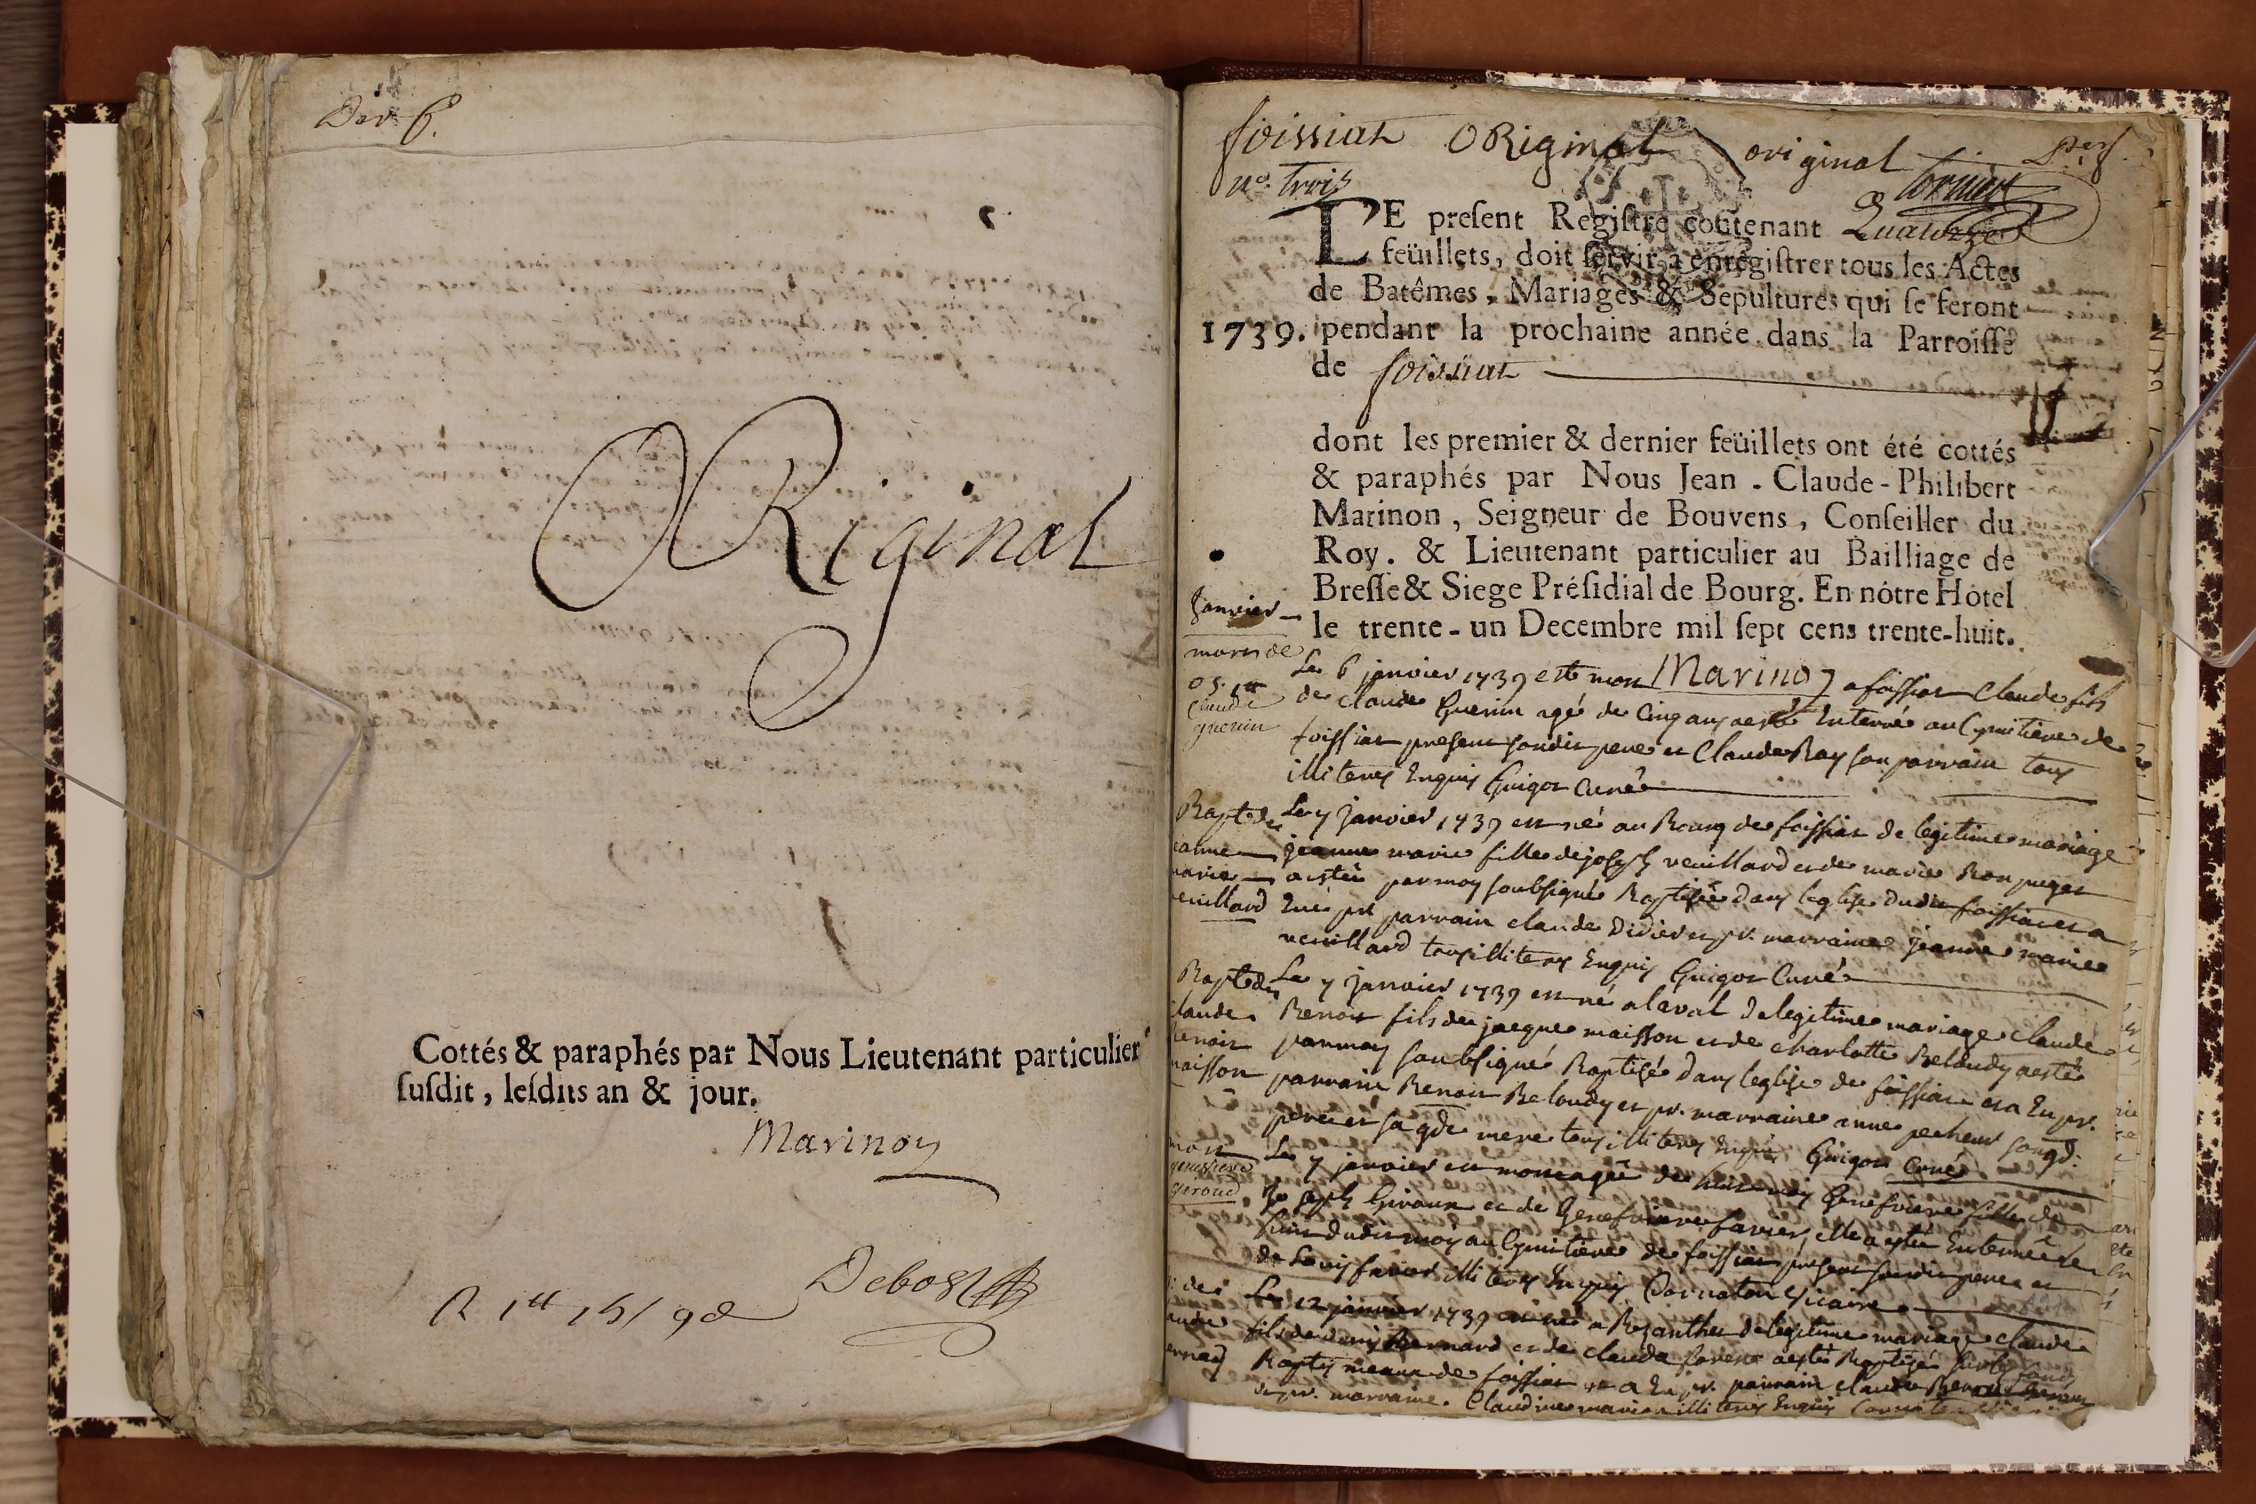 Der f.
ORiginal
Cottés & paraphés par Nous Lieutenant particulier
susdit, lesdits an & jour.
Marinon
Debost
foissiat ORiginal original
no. trois
LE present Registre contenant Quatorze
feüillets, doit servir à enregistrer tous les Actes
de Batêmes, Mariages & Sepultures qui se feront
1739. pendant la prochaine année dans la Parroisse
de foissiat
dont les premier & dernier feüillets ont été cottés
& paraphés par Nous Jean-Claude-Philibert
Marinon, Seigneur de Bouvens, Conseiller du
Roy. & Lieutenant particulier au Bailliage de
Bresse & Siege Présidial de Bourg. En nôtre Hôtel
le trente-un Decembre mil sept cens trente-huit.
Janvier
mort de
Claude
guerin
Marinon
Le 6 janvier 1739 est mort a foissiat Claude fils
de Claude Guerin agé de cinq ans a esté Enterré au Cymitiere de
foissiat present sondit pere et Claude Ray son parrain tous
illiterés Enquis Guigot Curé
Bapt de
jeanne
marie
veuillard
Le 7 janvier 1739 est né au Bourg de foissiat de legitime mariage
jeanne marie fille de joseph veuillard et de marie Bon puget
a estée par moy soubsigné Baptisée dans leglise dudit foissiat et a
Eue pr parrain claude Didier et pr. marraine jeanne marie
veuillard tous illiterés Enquis Guigot Curé
Bapt de
Claude
Benoit
maisson
Le 7 janvier 1739 est né a laval de legitime mariage claude
Benoit fils de jacque maisson et de charlotte Beloudy a esté
par moy soubsigné Baptisé dans leglise de foissiat et a Eu pr.
parrain Benoit Beloudy et pr. marraine anne pecheur son gd.
pere et sa gde mere tous illiterés Enquis Guigot Curé
mort
genefvieve
giroud
Le 7 janvier est morte agée de huit mois Genefvieve fille de
Joseph Giroux et de Genefvieve favier, elle a estée Enterrée le
huit dudit mois au Cymitiere de foissiat present sondit pere et
de Louis favier illiterés Enquis Cornaton vicaire
Le 12 janvier 1739 est né a Bezanthe de legitime mariage claude
fils de Denis Bernard et de claude a esté Baptisé
Baptismeaux de foissiat et a Eu pr. parrain claude
et pr. marraine Claudine illiterés Enquis Cornaton